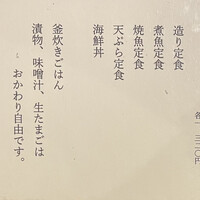 造り定食
煮魚定食
焼魚定食
天ぷら定食
海鮮丼
釜炊きごはん
漬物、味噌汁、生たまごは
おかわり自由です。